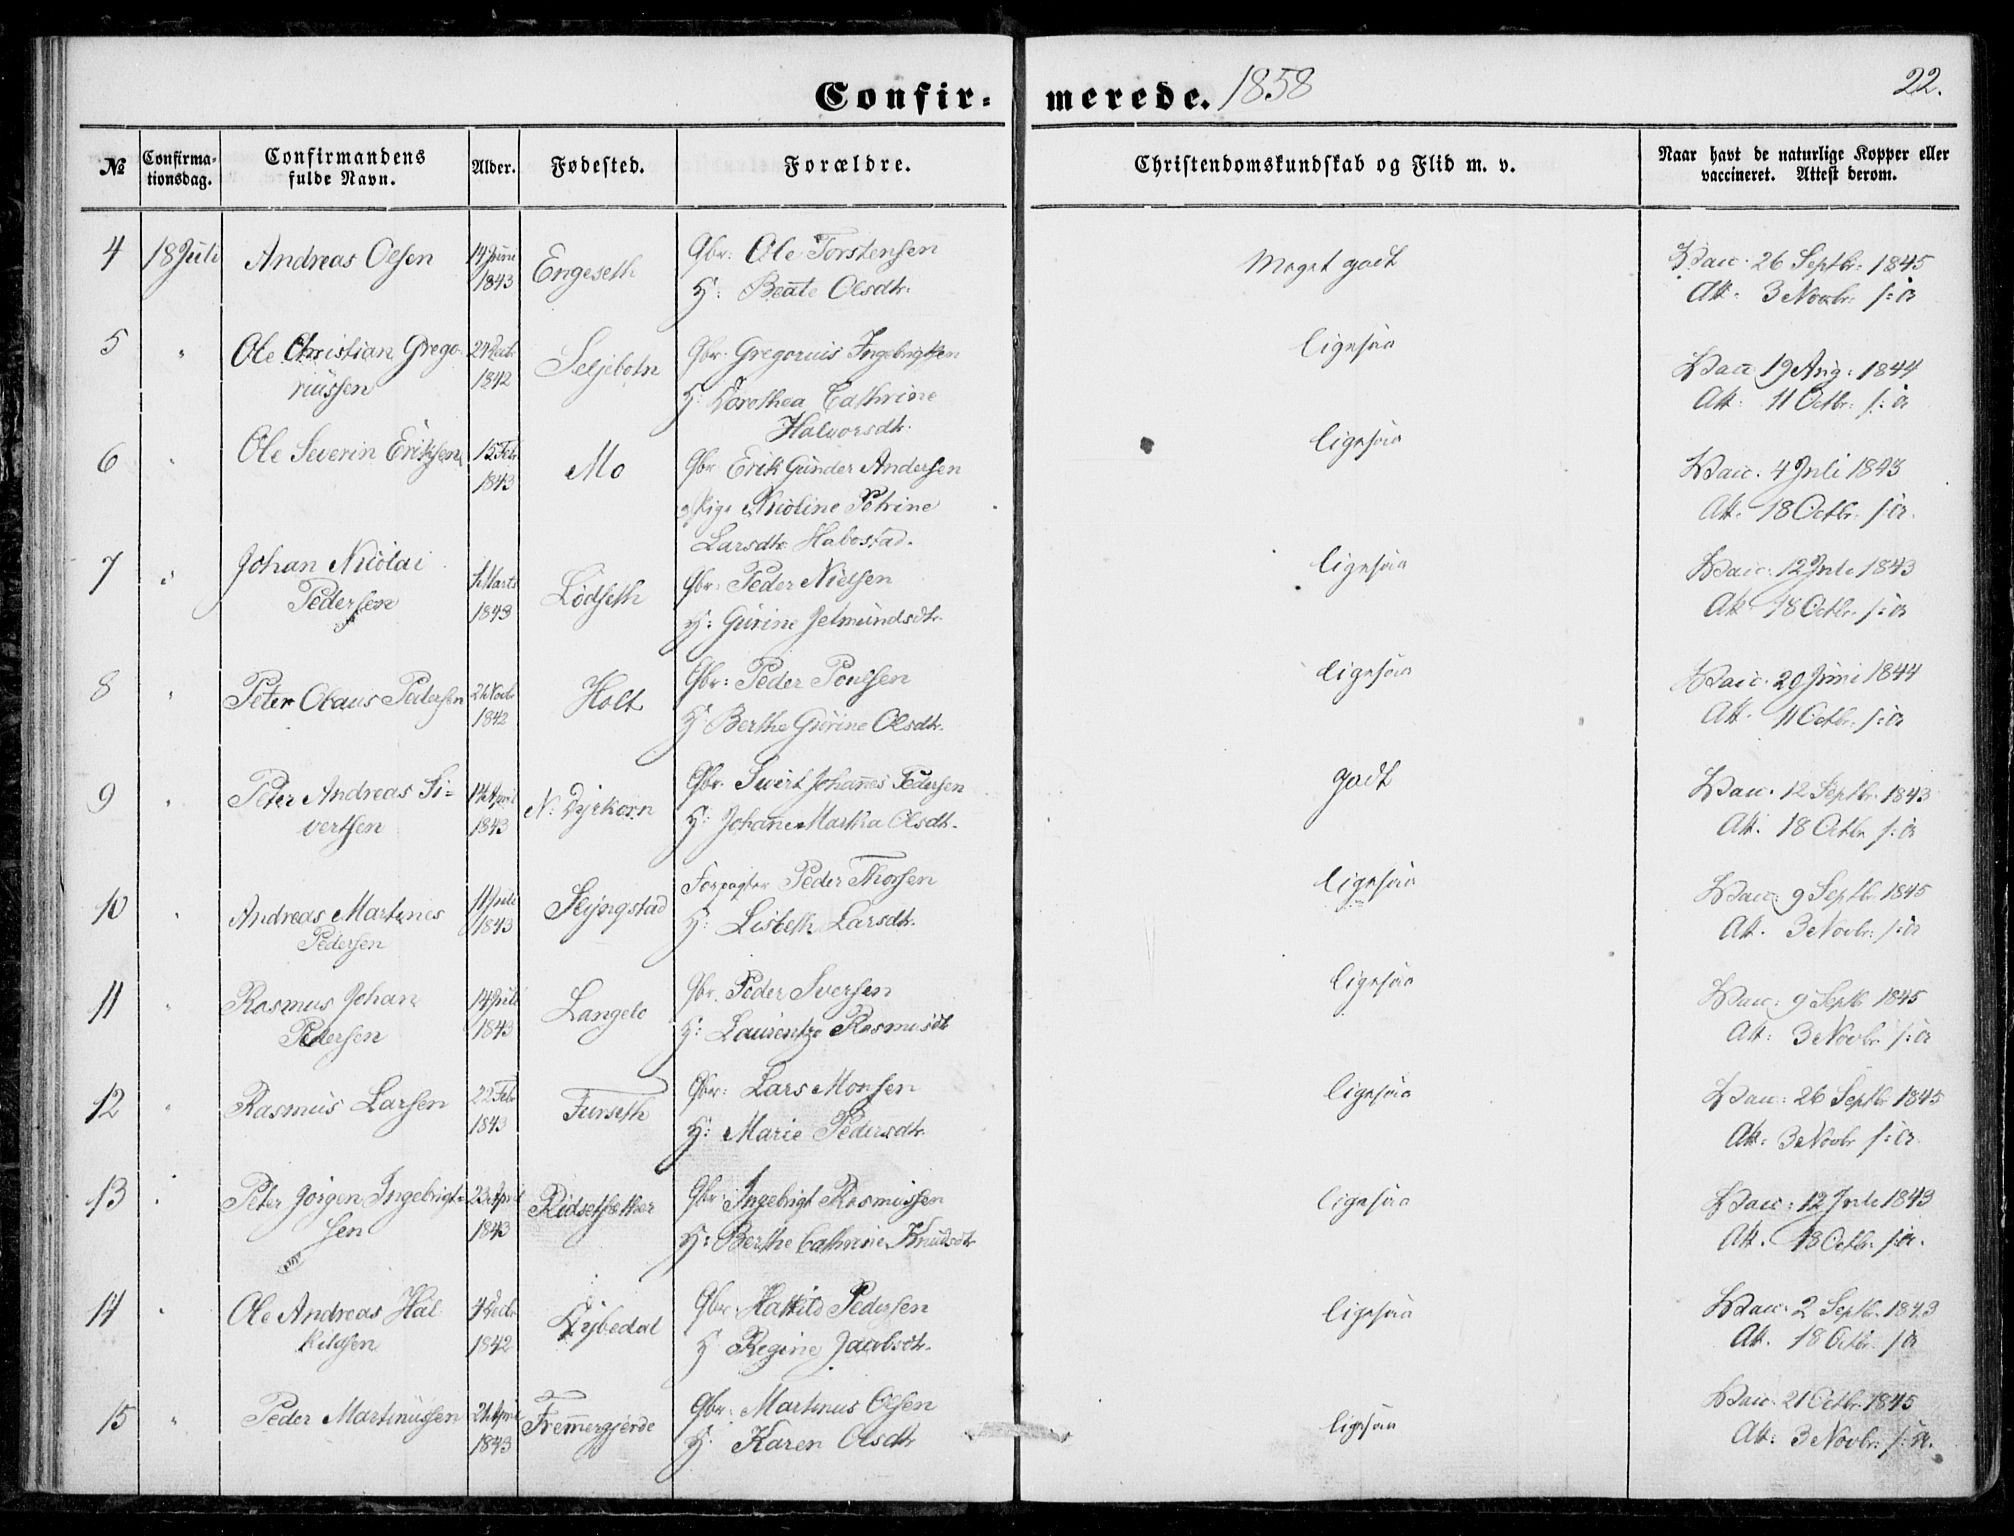 Confir- merede. 1858
22.
№ Confirma-tionsdag. Confirmandens fulde Navn. Alder. Fodested. Forældre. Christendomskundskab og Flid m. v. Naar havt de naturlige Kopper eller vaccineret. Attest derom.
4 18 Juli Andreas Olsen 14 Juni 1843 Engeseth Gbr: Ole Torstensen Meget godt Vacc. 26 Septbr: 1845
H: Beate Olsdtr. Att. 3 Novbr: s: A
5 " Ole Christian Grego- 24 Decbr 1842 Seljebotn Gbr. Gregorius Ingebrigtsen ligesaa Vacc 19 Aug: 1844
riussen H: Dorothea Cathrine Att. 11 Octbr. s: A
Halvorsdtr.
6 " Ole Severin Eriksen 15 Feb 1843 Mo Gbr Erik Gunder Andersen ligesaa Vacc. 4 Juli 1843
Pige Nicoline Petrine Att. 18 Octbr. s: A.
Larsdtr Habostad.
7 " Johan Nicolai Marts 1843 Lödseth Gbr. Peder Nielsen ligesaa Vacc. 12 Juli 1843
Pedersen H: Gurine Jetmundsdtr. Att 18 Octbr. s: A
8 " Peter Olaus Pedersen Novbr 1842 Holt Gbr: Peder Poulsen ligesaa Vacc. 20 Juni 1844
H Berthe Gurine Olsdtr. Att. 11 Octbr. s: A
9 " Peter Andreas Si- April 1843 N. Dyrkorn Gbr. Sivert Johannes Pedersen godt Vacc. 12 Septbr. 1843
vertsen H: Johane Martha Olsdtr. Att. 18 Octbr s: A
10 " Andreas Martinus Juli 1843 Forpagter Peder Thorsen ligesaa Vacc: 9 Septbr. 1845
Pedersen H: Lisbeth Larsdtr. Att. 3 Novbr: s: A
11 " Rasmus Johan 14 Juli 1843 Langelo Gbr. Peder Iversen ligesaa Vacc: 9 Septb 1845
Pedersen H: Laurentze Rasmusdt Att: 3 Novbr s: A
12 " Rasmus Larsen 22 Feb 1843 Furseth Gbr: Lars Monsen ligesaa Vacc: 26 Septbr 1845
H: Marie Pedersdtr. Att: 3 Novbr s: A.
13 " Peter Jörgen Ingebrigt- 23 April 1843 Rödsetsæther Gbr: Ingebrigt Rasmussen ligesaa Vacc: 12 Juli 1843
sen H: Berthe Cathrine Knudsdtr Att. 18 Octbr. s: A.
14 " Ole Andreas Hal 4 Decbr 1842 Dybedal Gbr: Halkild Pedersen ligesaa Vacc: 2 Septbr. 1843
kildsen H Regine Jacobsdtr. Att. 18 Octbr. s A
15 " Peder Martinussen April 1843 Fremmergjerde Gbr. Martinus Olsen ligesaa Vacc. 21 Octbr. 1845
H. Karen Olsdtr Att: 3 Novbr. s: A.